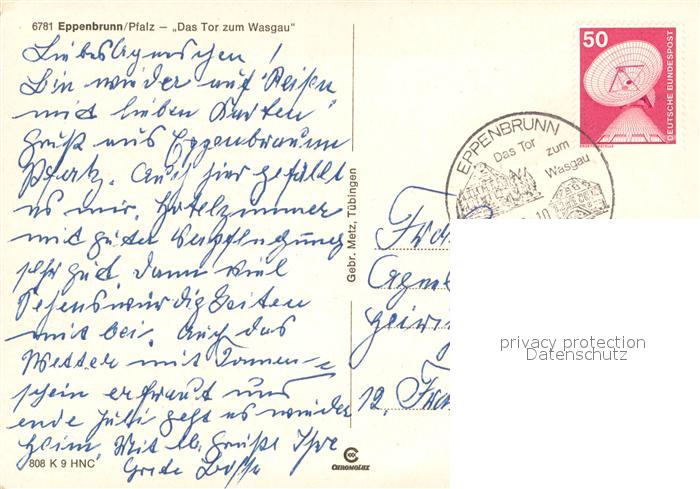 6781 Eppenbrunn/Pfalz – „Das Tor zum Wasgau"
Liebes Agneschen!
Bin wieder auf Reisen
mit lieben Karten
Gruß aus Eppenbraunn
Pfalz. Auch hier gefällt
es mir. Hotelzimmer
mit guter Verpflegung
sehr gut dann viel
Sehenswürdigkeiten
mit bei. Auch das
Wetter mit Sonnen-
schein erfreut und
ende Juli geht es wieder
heim. Mit lb. Grüße Ihre
Grete
808 K 9 HNC
CHROMOLUX
Gebr. Metz, Tübingen
50
DEUTSCHE BUNDESPOST
EPPENBRUNN
Das Tor zum
Wasgau
10
Agne
12.
privacy protection
Datenschutz